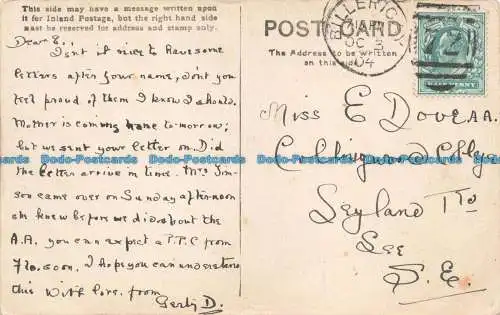 This side may have a message written upon
it for Inland Postage, but the right hand side
must be reserved for address and stamp only.
Dear E.,
Isn't it nice to have some
letters after your name, don't you
feel proud of them I know I should.
Mother is coming home to-morrow;
but we sent your letter on. Did
the letter arrive in time. Mrs
son came over on Sunday afternoon
she knew before we did about the
A.A. you can expect a P.P.C from
Flo. soon. I hope you can understand
this With love. from
D.
POST CARD
The Address to be written
on this side.
BILLERICAY
OC 3
04
72
HALFPENNY
Miss E Dove AA.
Collingwood
Leyland Rd
Lee
S.E.
Dodo-Postcards Dodo-Postcards Dodo-Postcards Dodo-Postcards